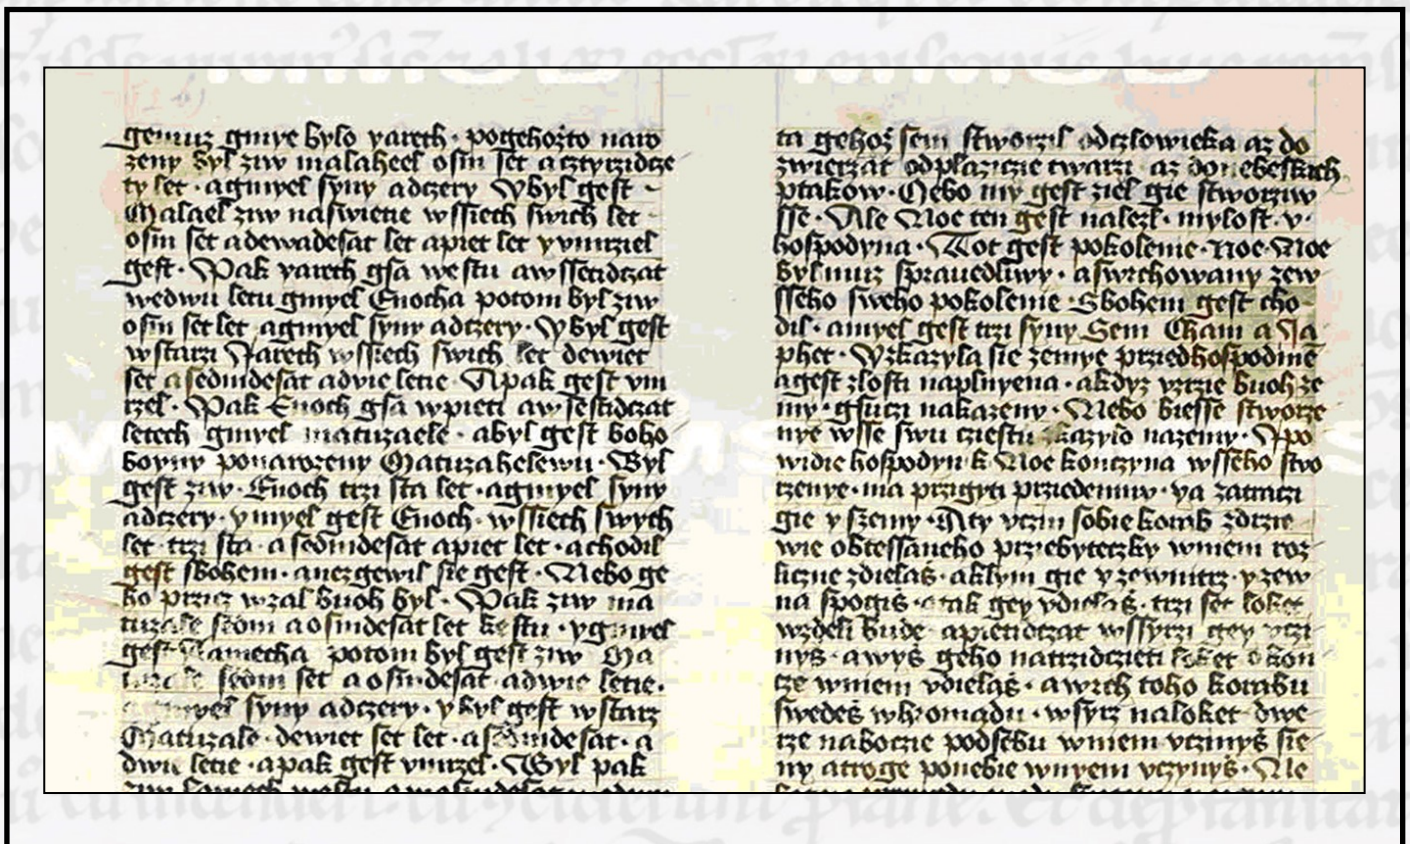 gemuz gmye bylo yareth · pogehožto naro
zeny byl ziw malaheel osm set a cztyrzidcze
ty let · a gmyel syny a dczery Y byl gest
Malael ziw naswietie wssiech swich let
osm set a dewadesat let a piet let y vmrziel
gest · Pak yareth gsa westu a wssestidczat
wedwu letu gmyel Enocha potom byl ziw
osm set let a gmyel syny a dczery · Y byl gest
wstarzi Jareth wssiech swich let dewiet
set a sedmdesat a dvie letie · A pak gest vm
rzel · Pak Enoch gsa wpieti a wsestidczat
letech gmyel matuzaele · a byl gest boho
boyny ponarozeny Matuzahelewu · Byl
gest ziw · Enoch trzi sta let · a gmyel syny
a dczery · y myel gest Enoch · wssiech swych
let · trzi sta · a sedmdesat a piet let · a chodil
gest sbohem · a nezgewil sie gest · Nebo ge
ho prziez wzal buoh byl · Pak ziw ma
tuzale sedm a osmdesat let y gmyel
gest Lamecha potom byl gest ziw Ma
sedm set a osmdesat · a dwie letie ·
syny a dczery · y byl gest wstarz
Matuzale · dewiet set let · a sedmdesat · a
dwu letie · a pak gest vmrzel · Byl pak
ta gehož sem stworzil odczlowieka az do
zwierzat odplazicie twarzi az donebeskich
ptakow · Nebo my gest ziel gie stworziw
sse · Ale Noe ten gest nalezl · mylost · v ·
hospodyna · Tot gest pokolenie · noe · Noe
byl muz sprauedliwy · a swrchowany zew
sseho sweho pokolenie · Sbohem gest cho
dil · a myel gest trzi syny Sem Cham a Ja
phet · Y zkazyla sie zemye przedhospodine
a gest zlosti naplnyena · a kdyz vzrzie buoh ze
my · gsuczi nakazeny · Nebo biesse stworze
nye wsse swu cziestu kazylo nazemy · I po
widie hospodyn k Noe konczyna wsseho stwo
rzenye · ma przigyti przedemnu · ya zatratzi
gie y szemy · A ty vczin sobie korab zdrzie
wie obtessaneho przebyteczky wniem roz
liczne zdielaš · a klym gie y zewnitrz · y zew
na spogiš · a tak gey vdielaš · trzi set loket
wzdeli bude · a pietidczat wssyrzi gey vczi
nyš · a wyš geho natrzidczieti loket okon
cze wniem vdielaš · a wrch toho korabu
swedeš whromadu · wsyrz naloket dwe
rze naboczie podsebu wniem vczinyš sie
ny a troge ponebie wnyem vczynyš · Ale